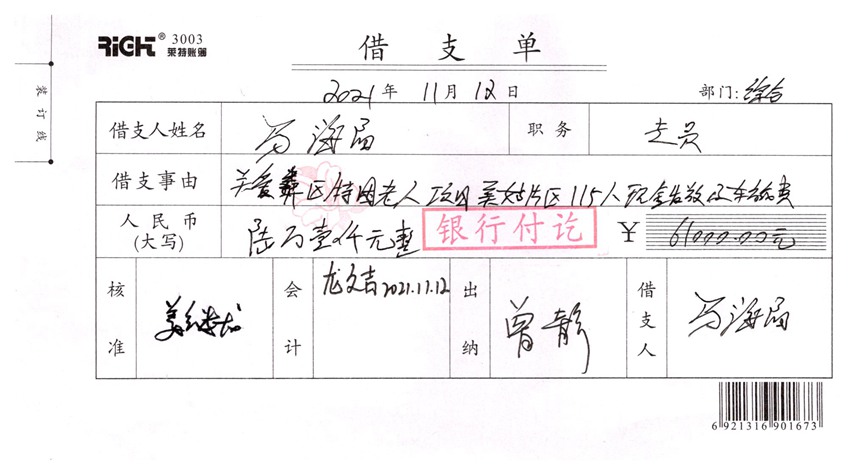 RiGHT® 3003
莱特账簿
借支单
装订线
2021年 11月 12日 部门:综合
借支人姓名 马海局 职务 专员
借支事由 关爱彝区特困老人项目美姑片区115人现金发放及车旅费
人民币(大写) 陆万壹仟元整 银行付讫 ¥ 61000.00元
核准 会计 龙文吉2021.11.12 出纳 曾静 借支人 马海局
6 921316 901673